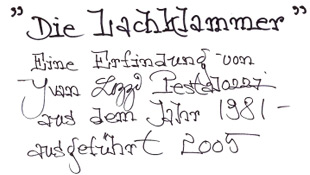 "Die Lachklammer"
Eine Erfindung von
Yvan Lozzi Pestalozzi
aus dem Jahr 1981 –
ausgeführt 2005